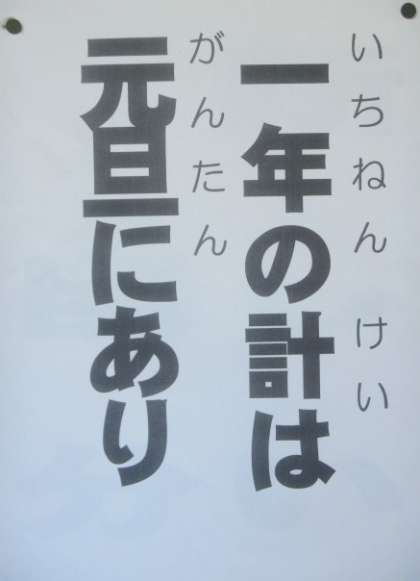 いちねん けい
一年の計は
がんたん
元旦にあり